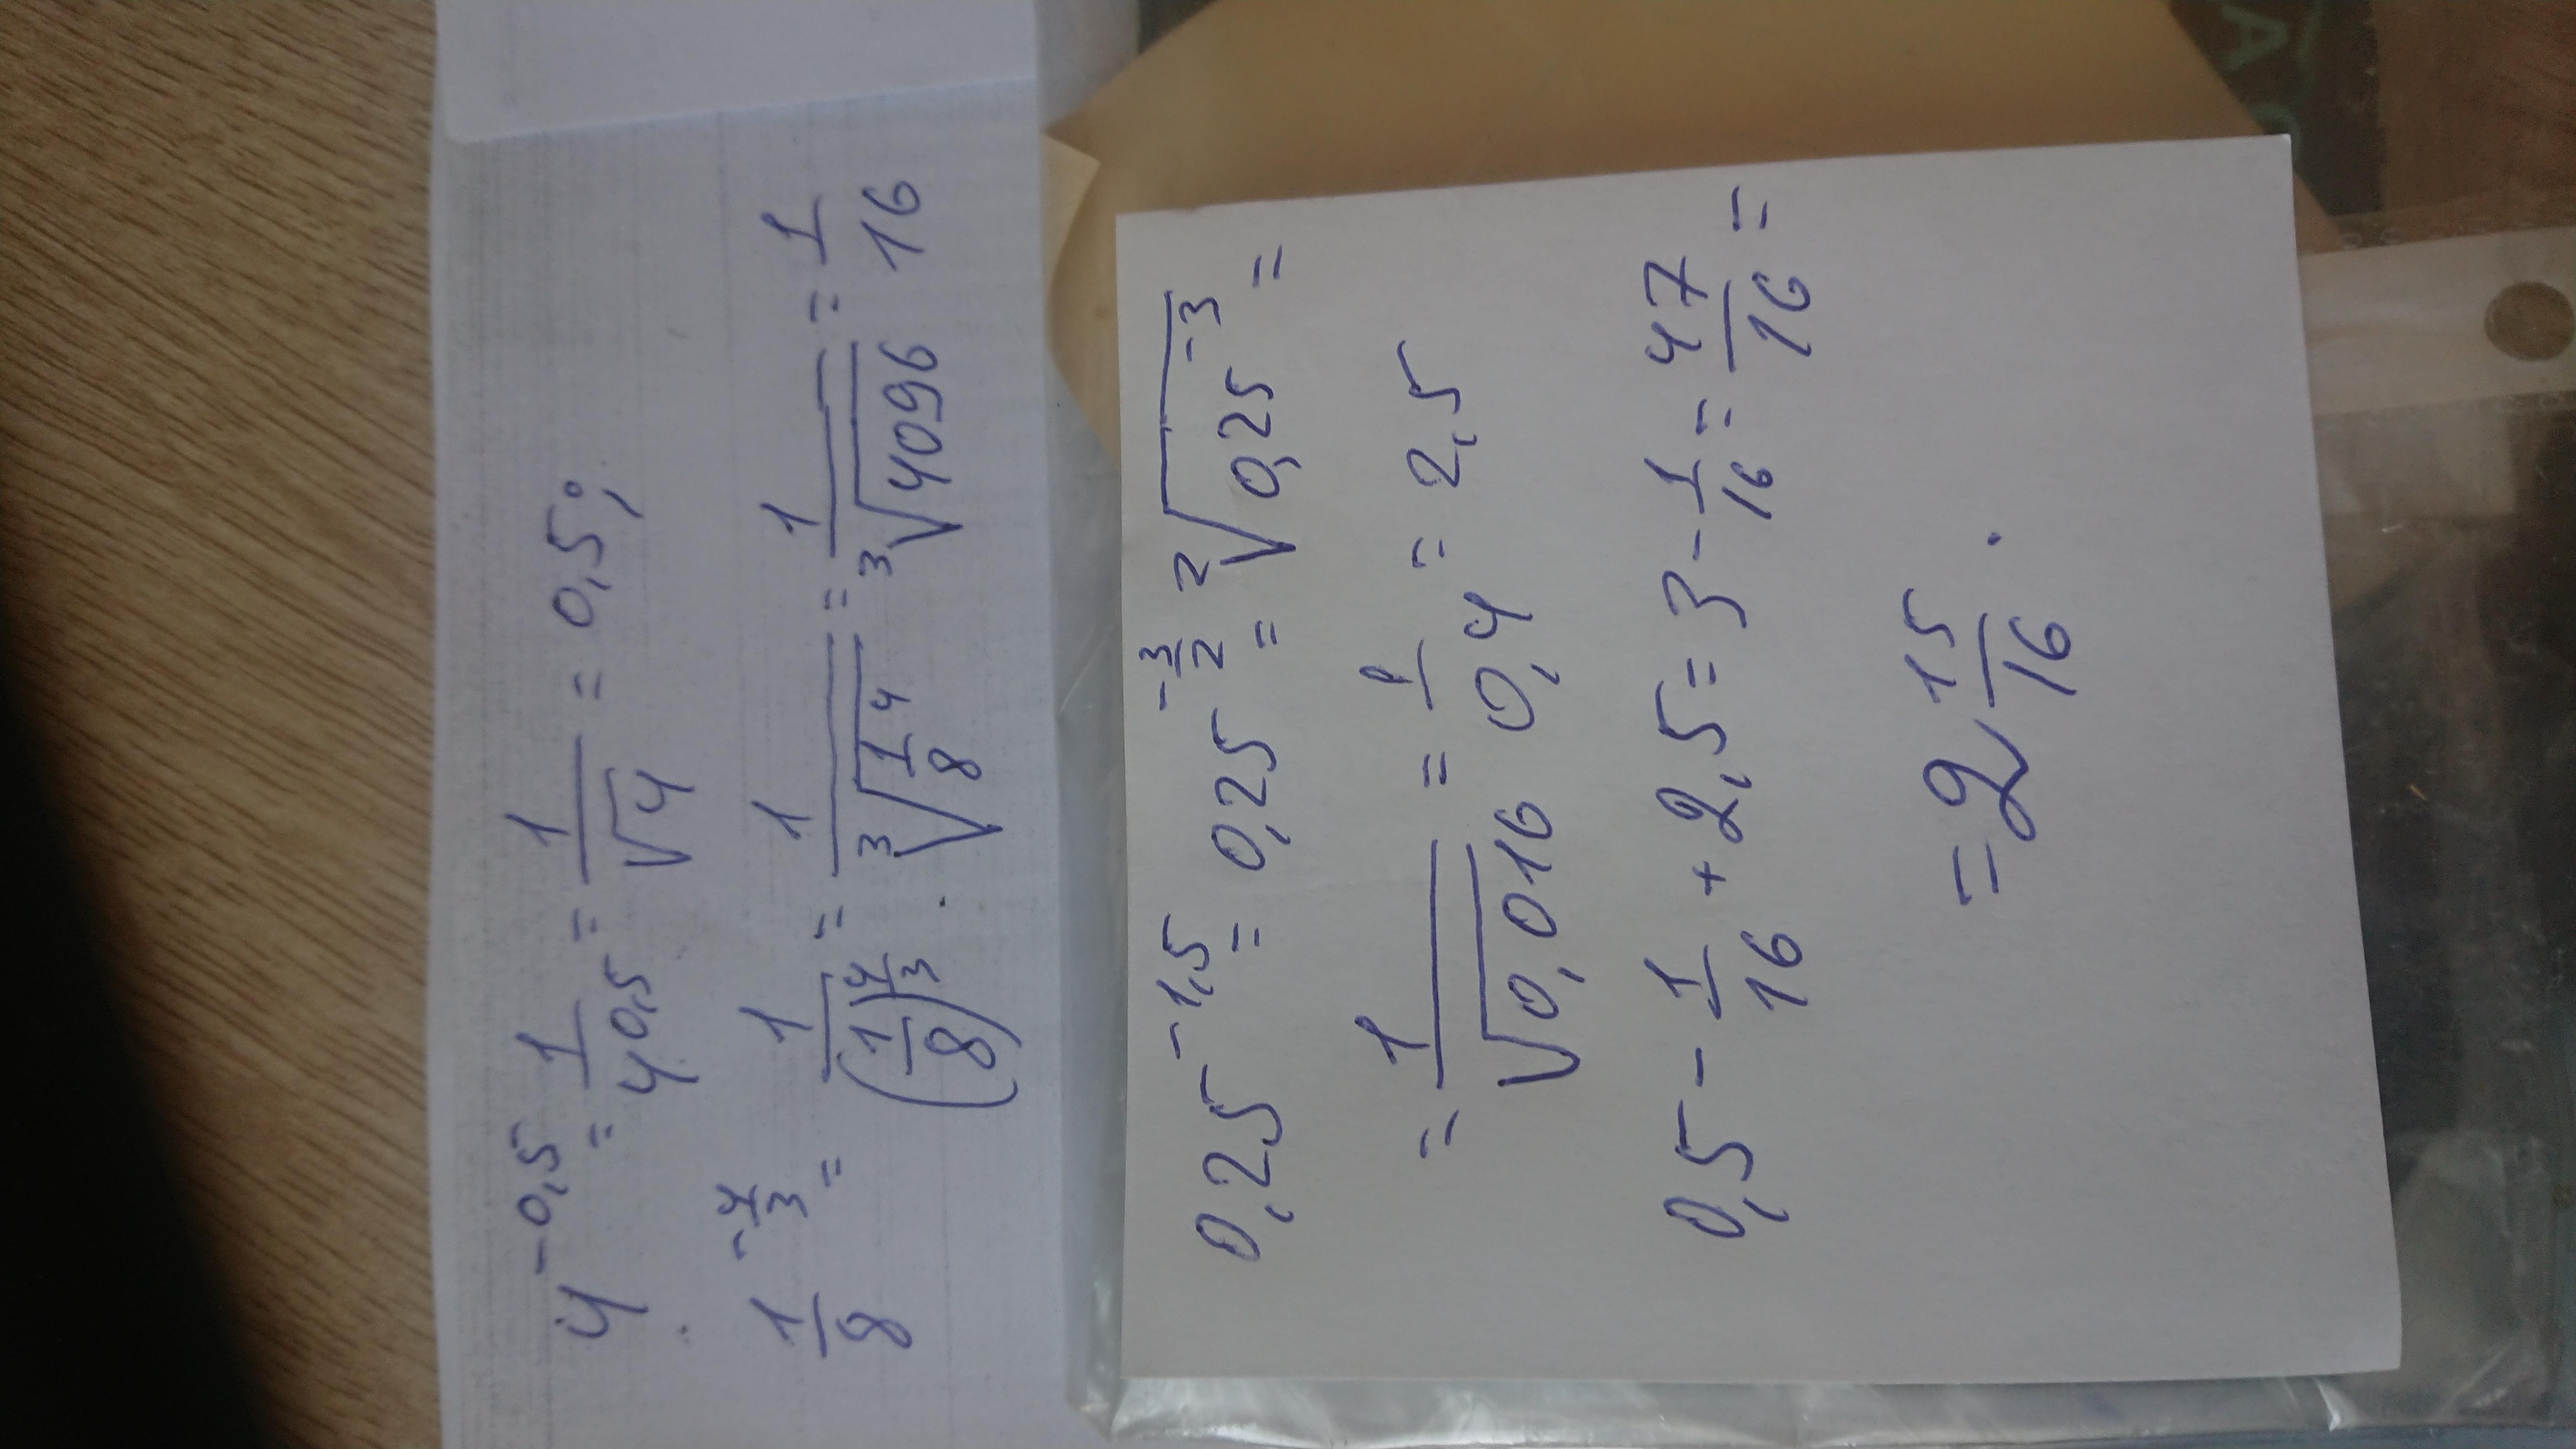 4^{-0,5} = \frac{1}{4^{0,5}} = \frac{1}{\sqrt{4}} = 0,5;
\frac{1}{8}^{-\frac{4}{3}} = \frac{1}{(\frac{1}{8})^{\frac{4}{3}}} = \frac{1}{\sqrt[3]{\frac{1}{8}^4}} = \frac{1}{\sqrt[3]{4096}} = \frac{1}{16}
0,25^{-1,5} = 0,25^{-\frac{3}{2}} = \sqrt[2]{0,25^{-3}} =
= \frac{1}{\sqrt{0,016}} = \frac{1}{0,4} = 2,5
0,5 - \frac{1}{16} + 2,5 = 3 - \frac{1}{16} = \frac{47}{16} =
= 2\frac{15}{16}.